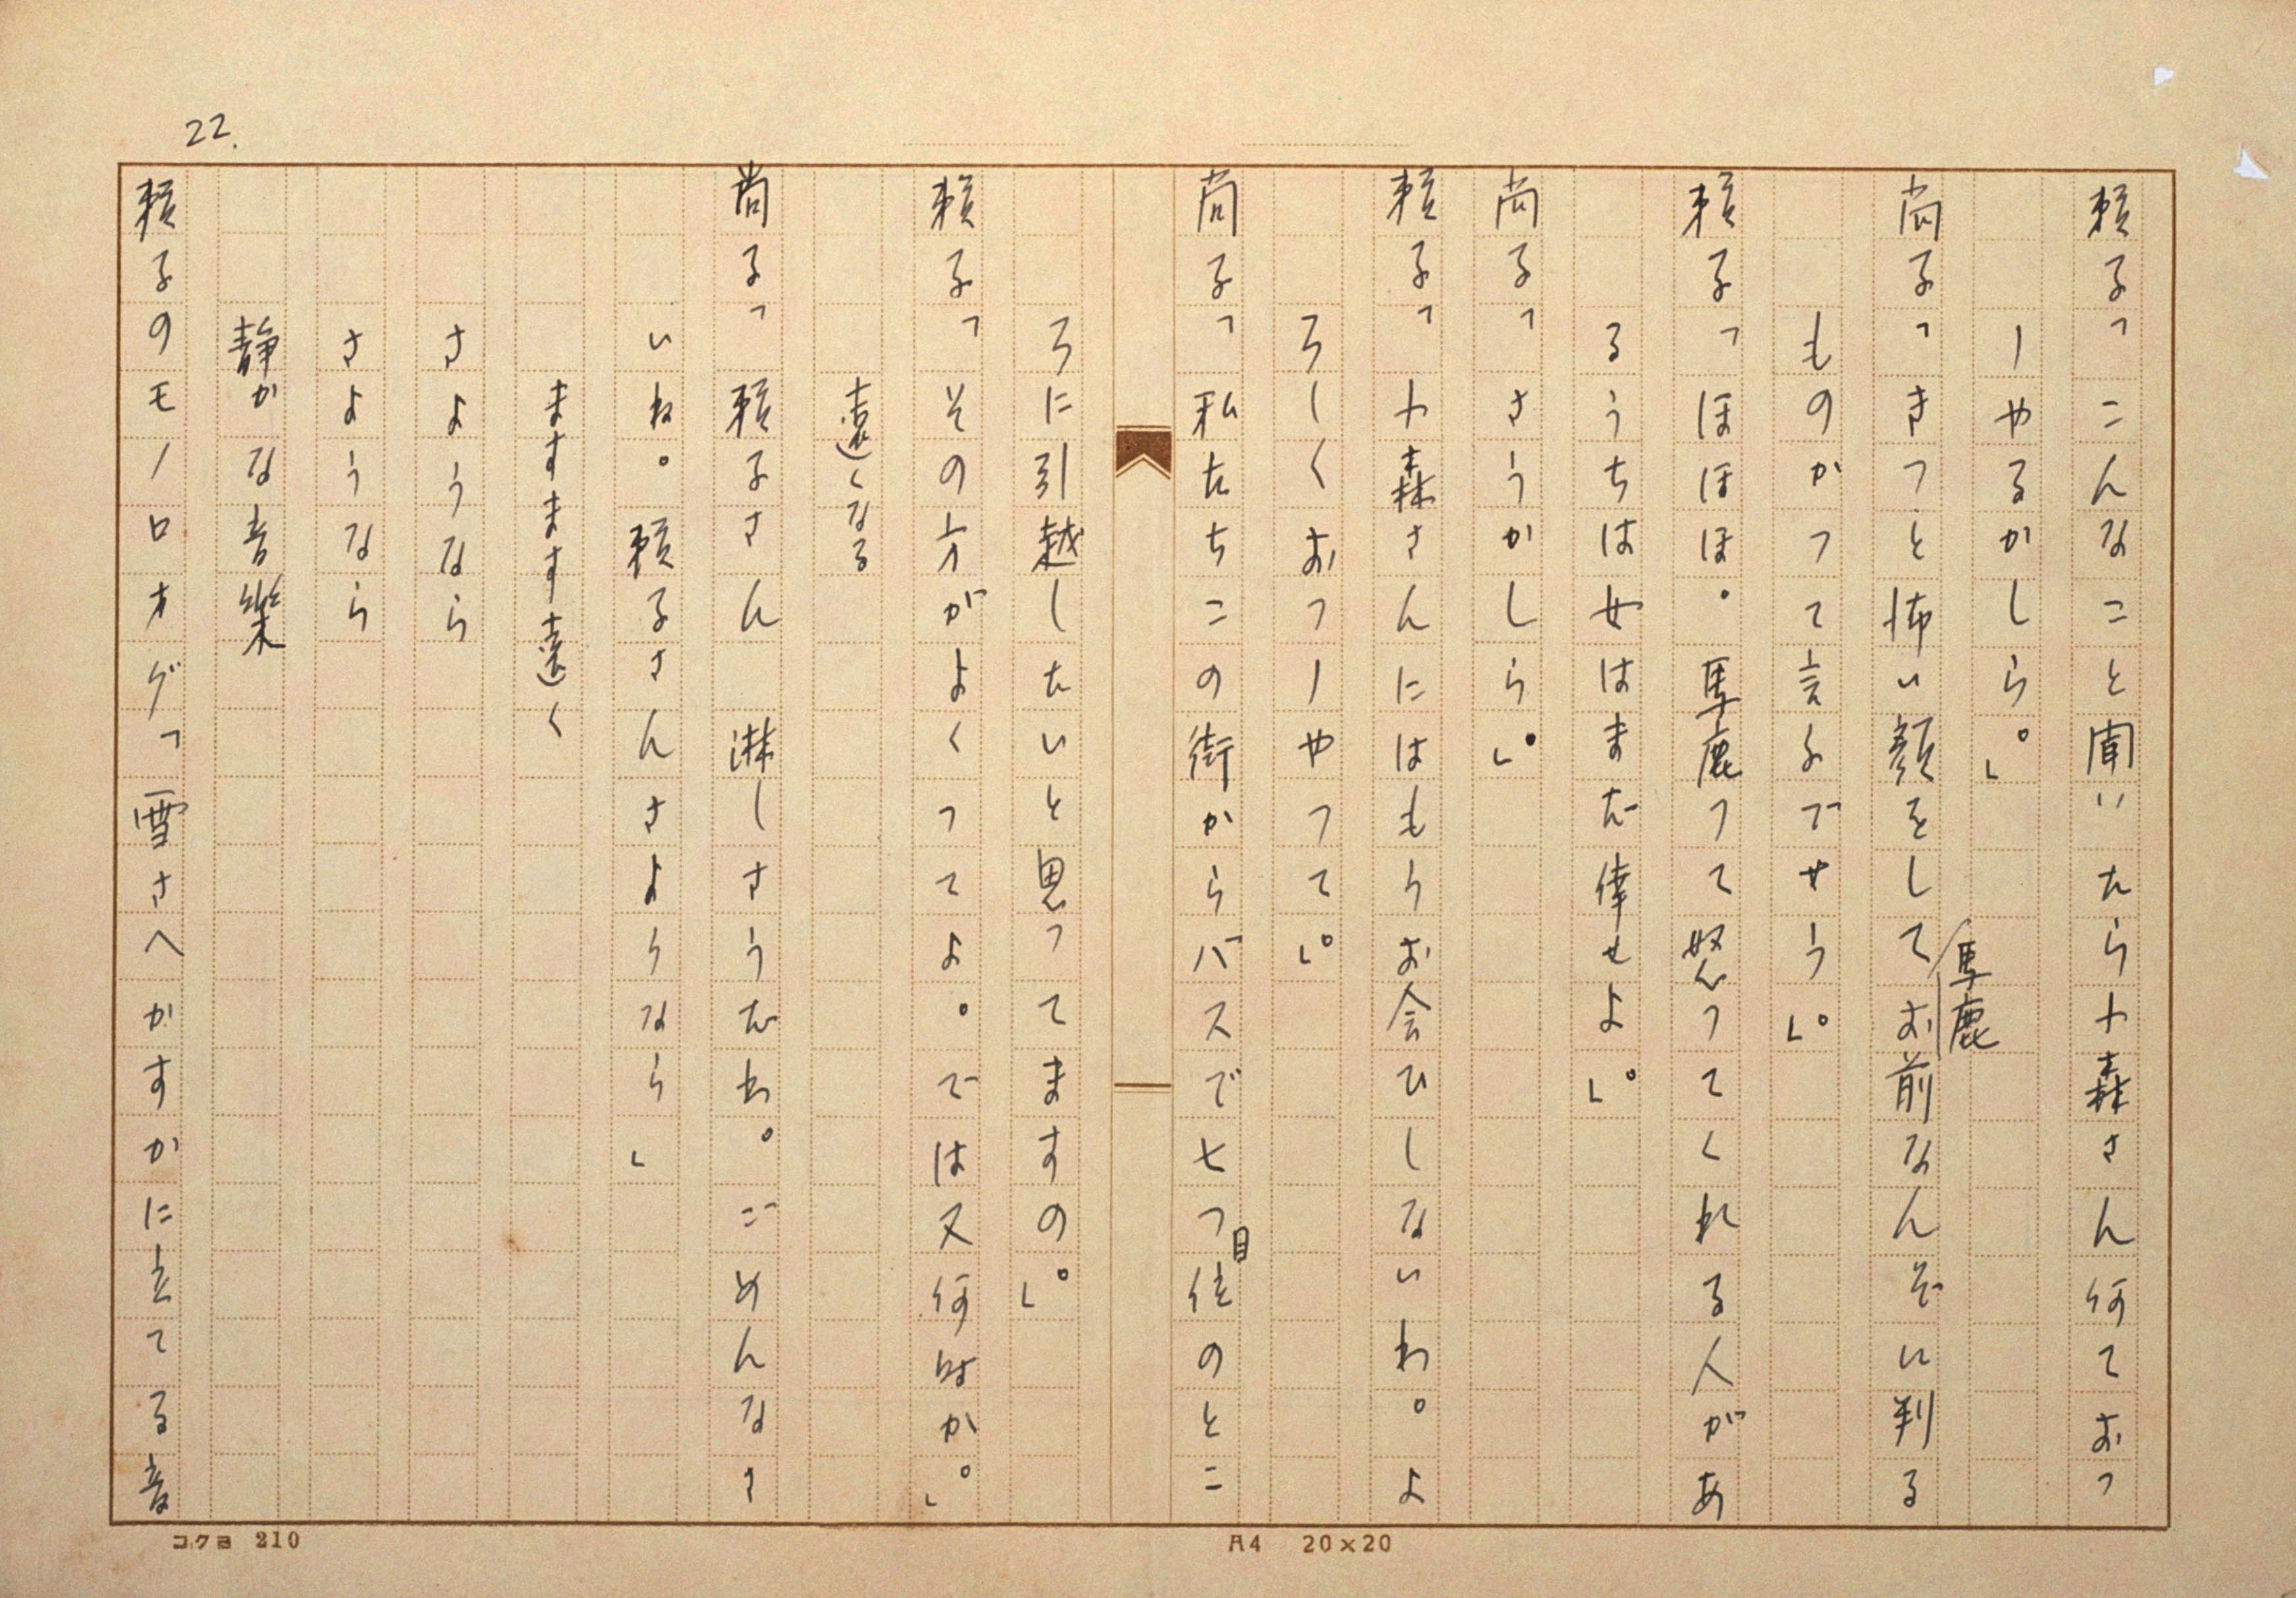 22.
頼子「こんなこと聞いたら小森さん何ておつ
しやるかしら。」
尚子「きつと怖い顔をして馬鹿お前なんぞに判る
ものかつて言ふでせう。」
頼子「ほほほほ。馬鹿つて怒つてくれる人があ
るうちは女はまだ倖せよ。」
尚子「さうかしら。」
頼子「小森さんにはもうお会ひしないわ。よ
ろしくおつしやつて。」
尚子「私たちこの街からバスで七つ目位のとこ
ろに引越したいと思つてますの。」
頼子「その方がよくつてよ。では又何時か。」
遠くなる
尚子「頼子さん 淋しさうだわ。ごめんなさ
いね。頼子さんさようなら」
ますます遠く
さようなら
さようなら
静かな音樂
頼子のモノロオグ「雪さへかすかに立てる音
コクヨ 210
A4 20×20